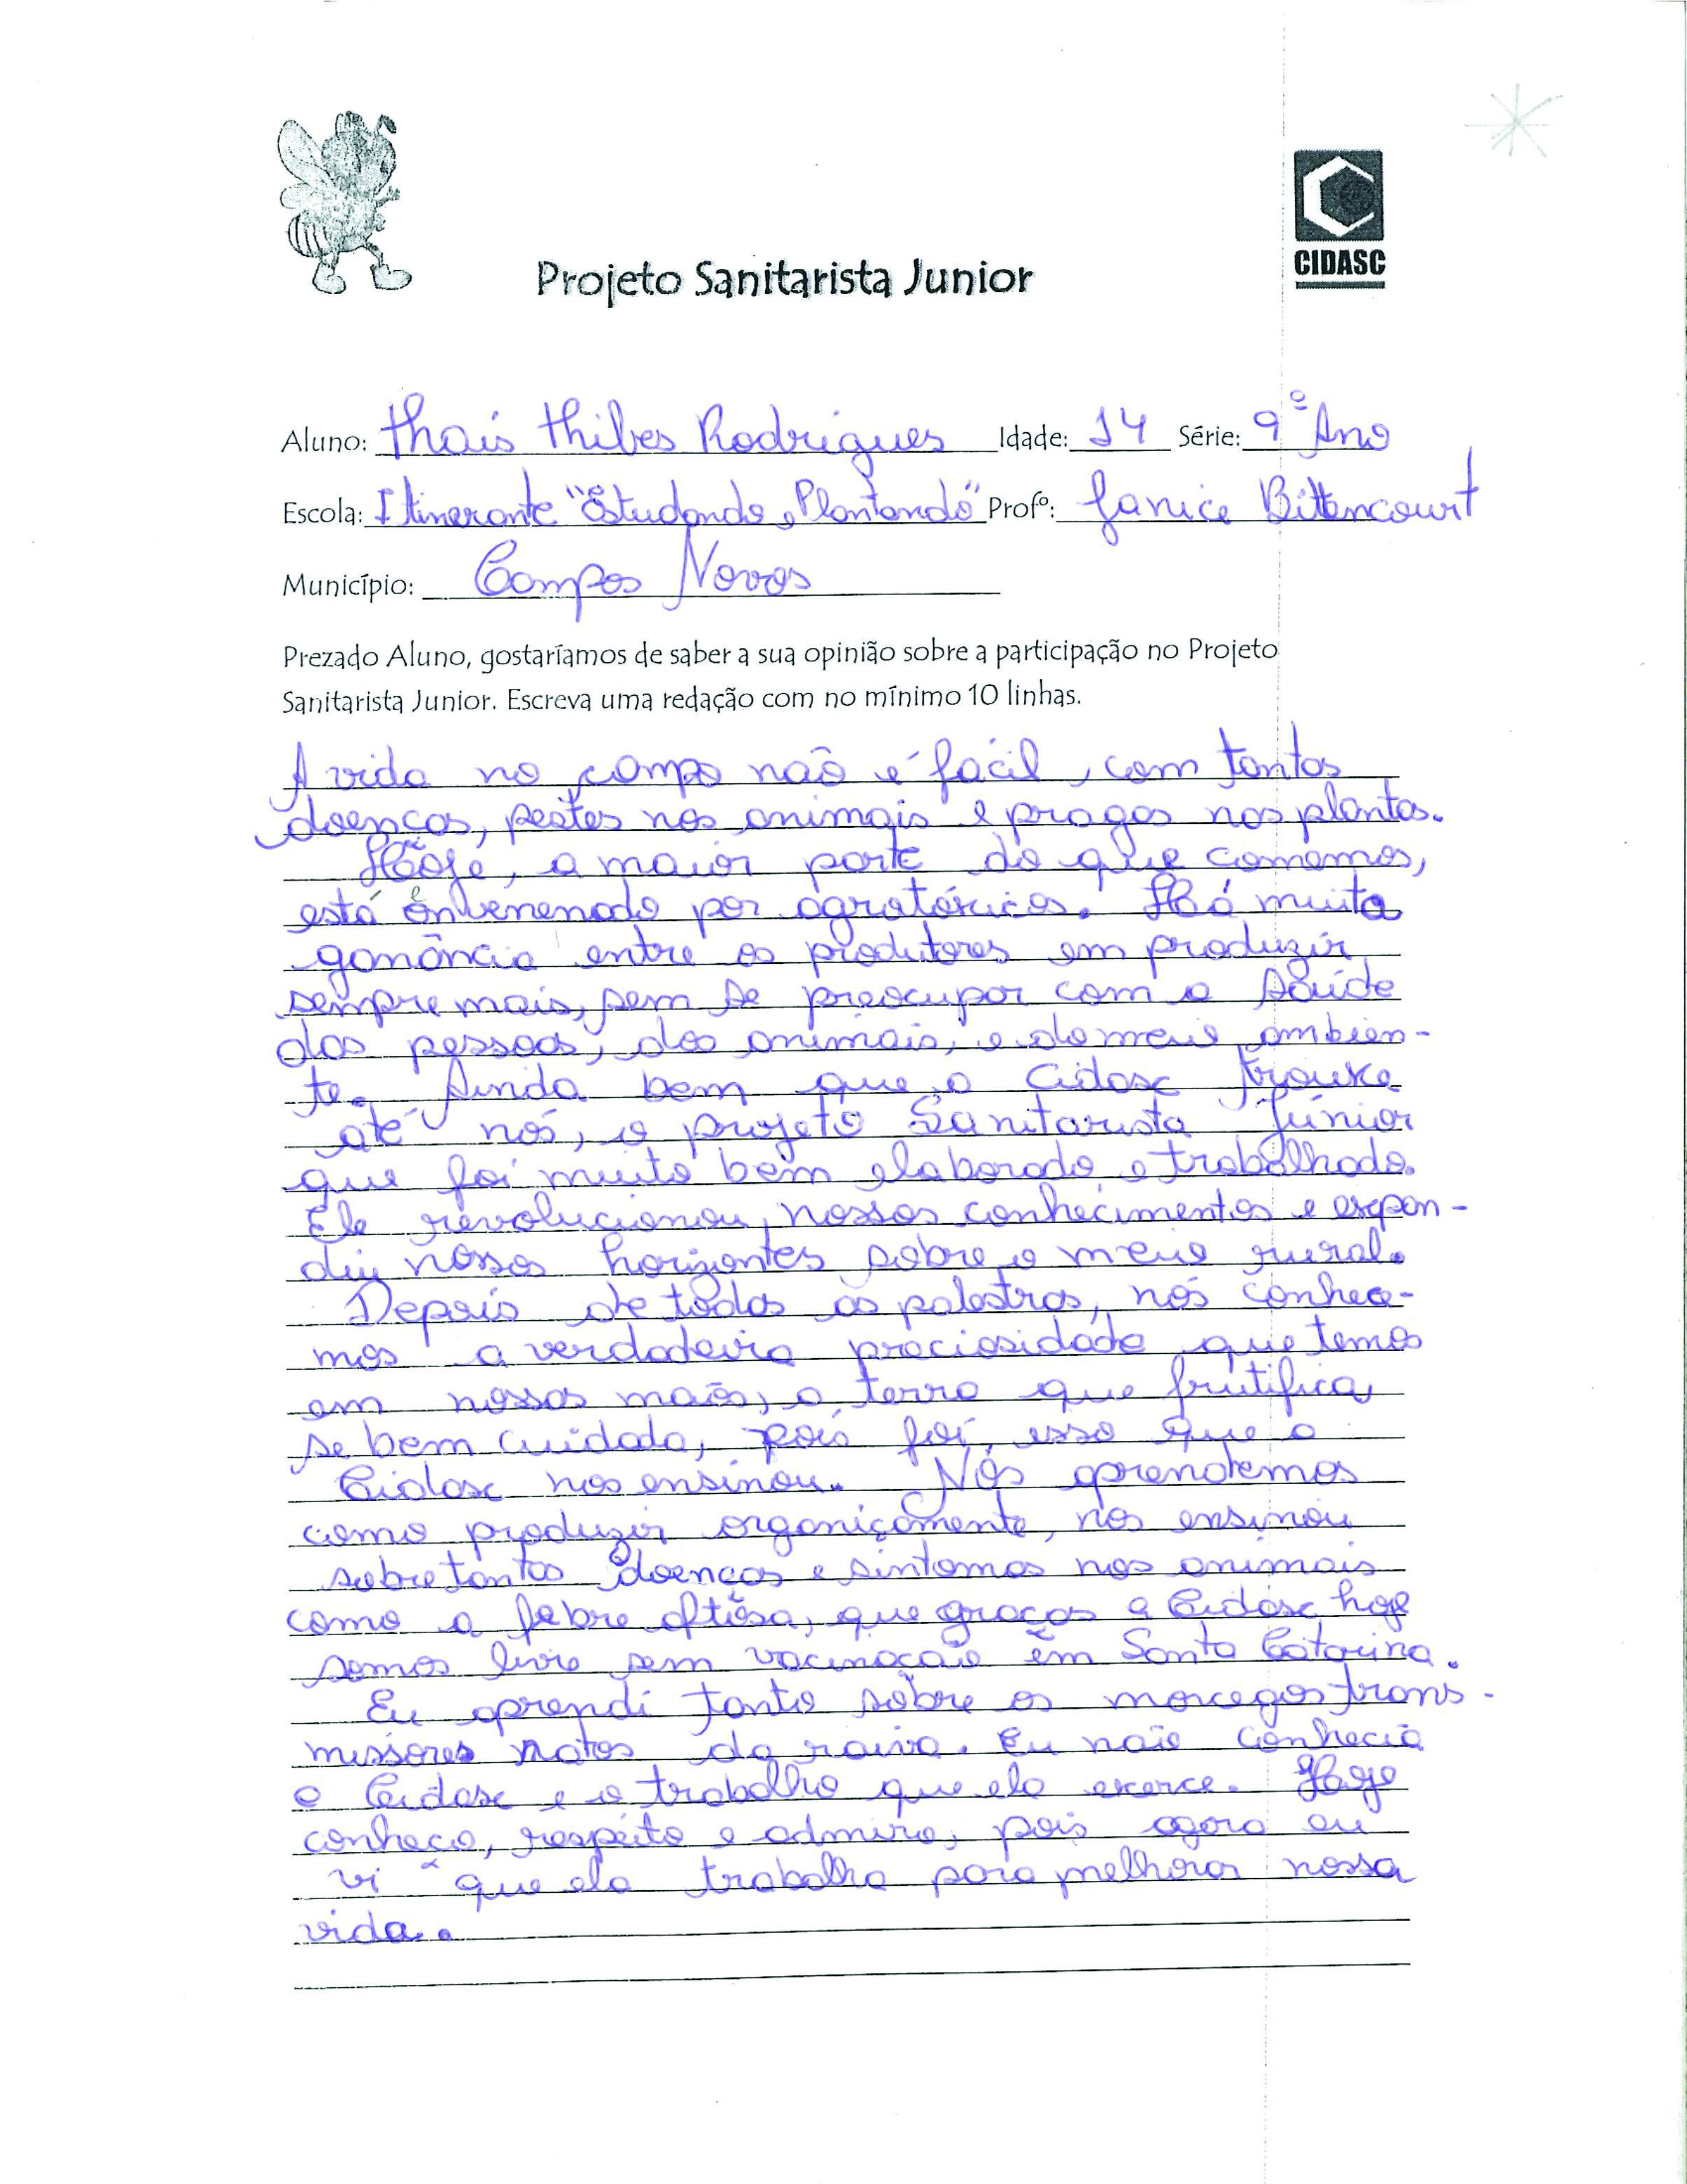 CIDASC
Projeto Sanitarista Junior
Aluno: Thais Thibes Rodrigues Idade: 14 Série: 9º Ano
Escola: Itinerante "Estudando e Plantando" Profº: Janice Bittencourt
Município: Campos Novos
Prezado Aluno, gostaríamos de saber a sua opinião sobre a participação no Projeto
Sanitarista Junior. Escreva uma redação com no mínimo 10 linhas.
A vida no campo não é fácil, com tantas
doenças, pestes nos animais e pragas nas plantas.
Hoje, a maior parte do que comemos,
está envenenado por agrotóxicos. Há muita
ganância entre os produtores em produzir
sempre mais, sem se preocupar com a saúde
das pessoas, dos animais, e do meio ambien-
te. Ainda bem que a Cidasc trouxe
até nós, o projeto Sanitarista Júnior
que foi muito bem elaborado e trabalhado.
Ele revolucionou nossos conhecimentos e expan-
diu nossos horizontes sobre o meio rural.
Depois de todas as palestras, nós conhece-
mos a verdadeira preciosidade que temos
em nossas mãos, a terra que frutifica
se bem cuidada, pois foi isso que a
Cidasc nos ensinou. Nós aprendemos
como produzir organicamente, nos ensinou
sobre tantas doenças e sintomas nos animais
como a febre aftosa, que graças a Cidasc hoje
somos livre sem vacinação em Santa Catarina.
Eu aprendi tanto sobre os morcegos trans-
missores natos da raiva. Eu não conhecia
a Cidasc e o trabalho que ela exerce. Hoje
conheço, respeito e admiro, pois agora eu
vi que ela trabalha para melhorar nossa
vida.